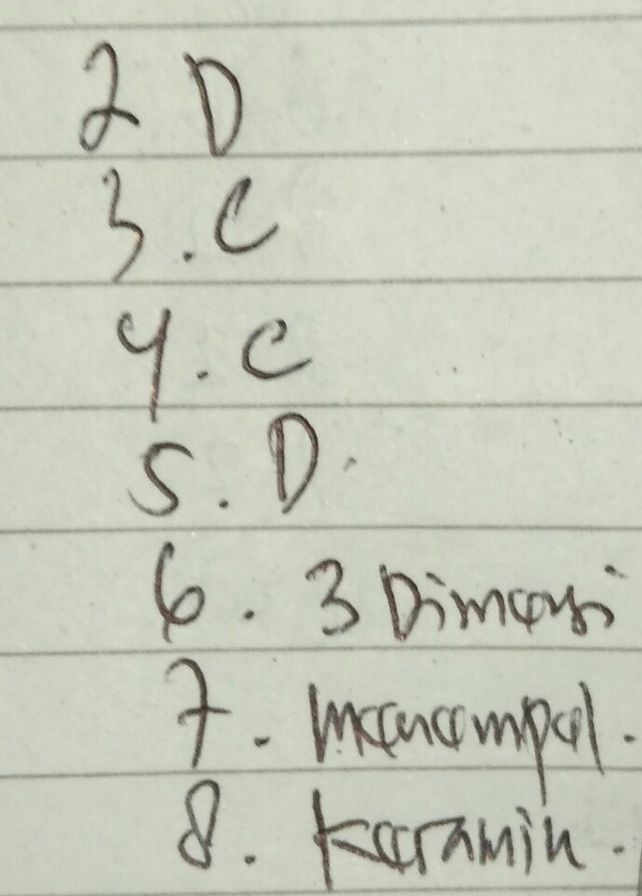 2 D
3. C
4. C
5. D.
6. 3 Dimensi
7. Menempel.
8. Keramik.